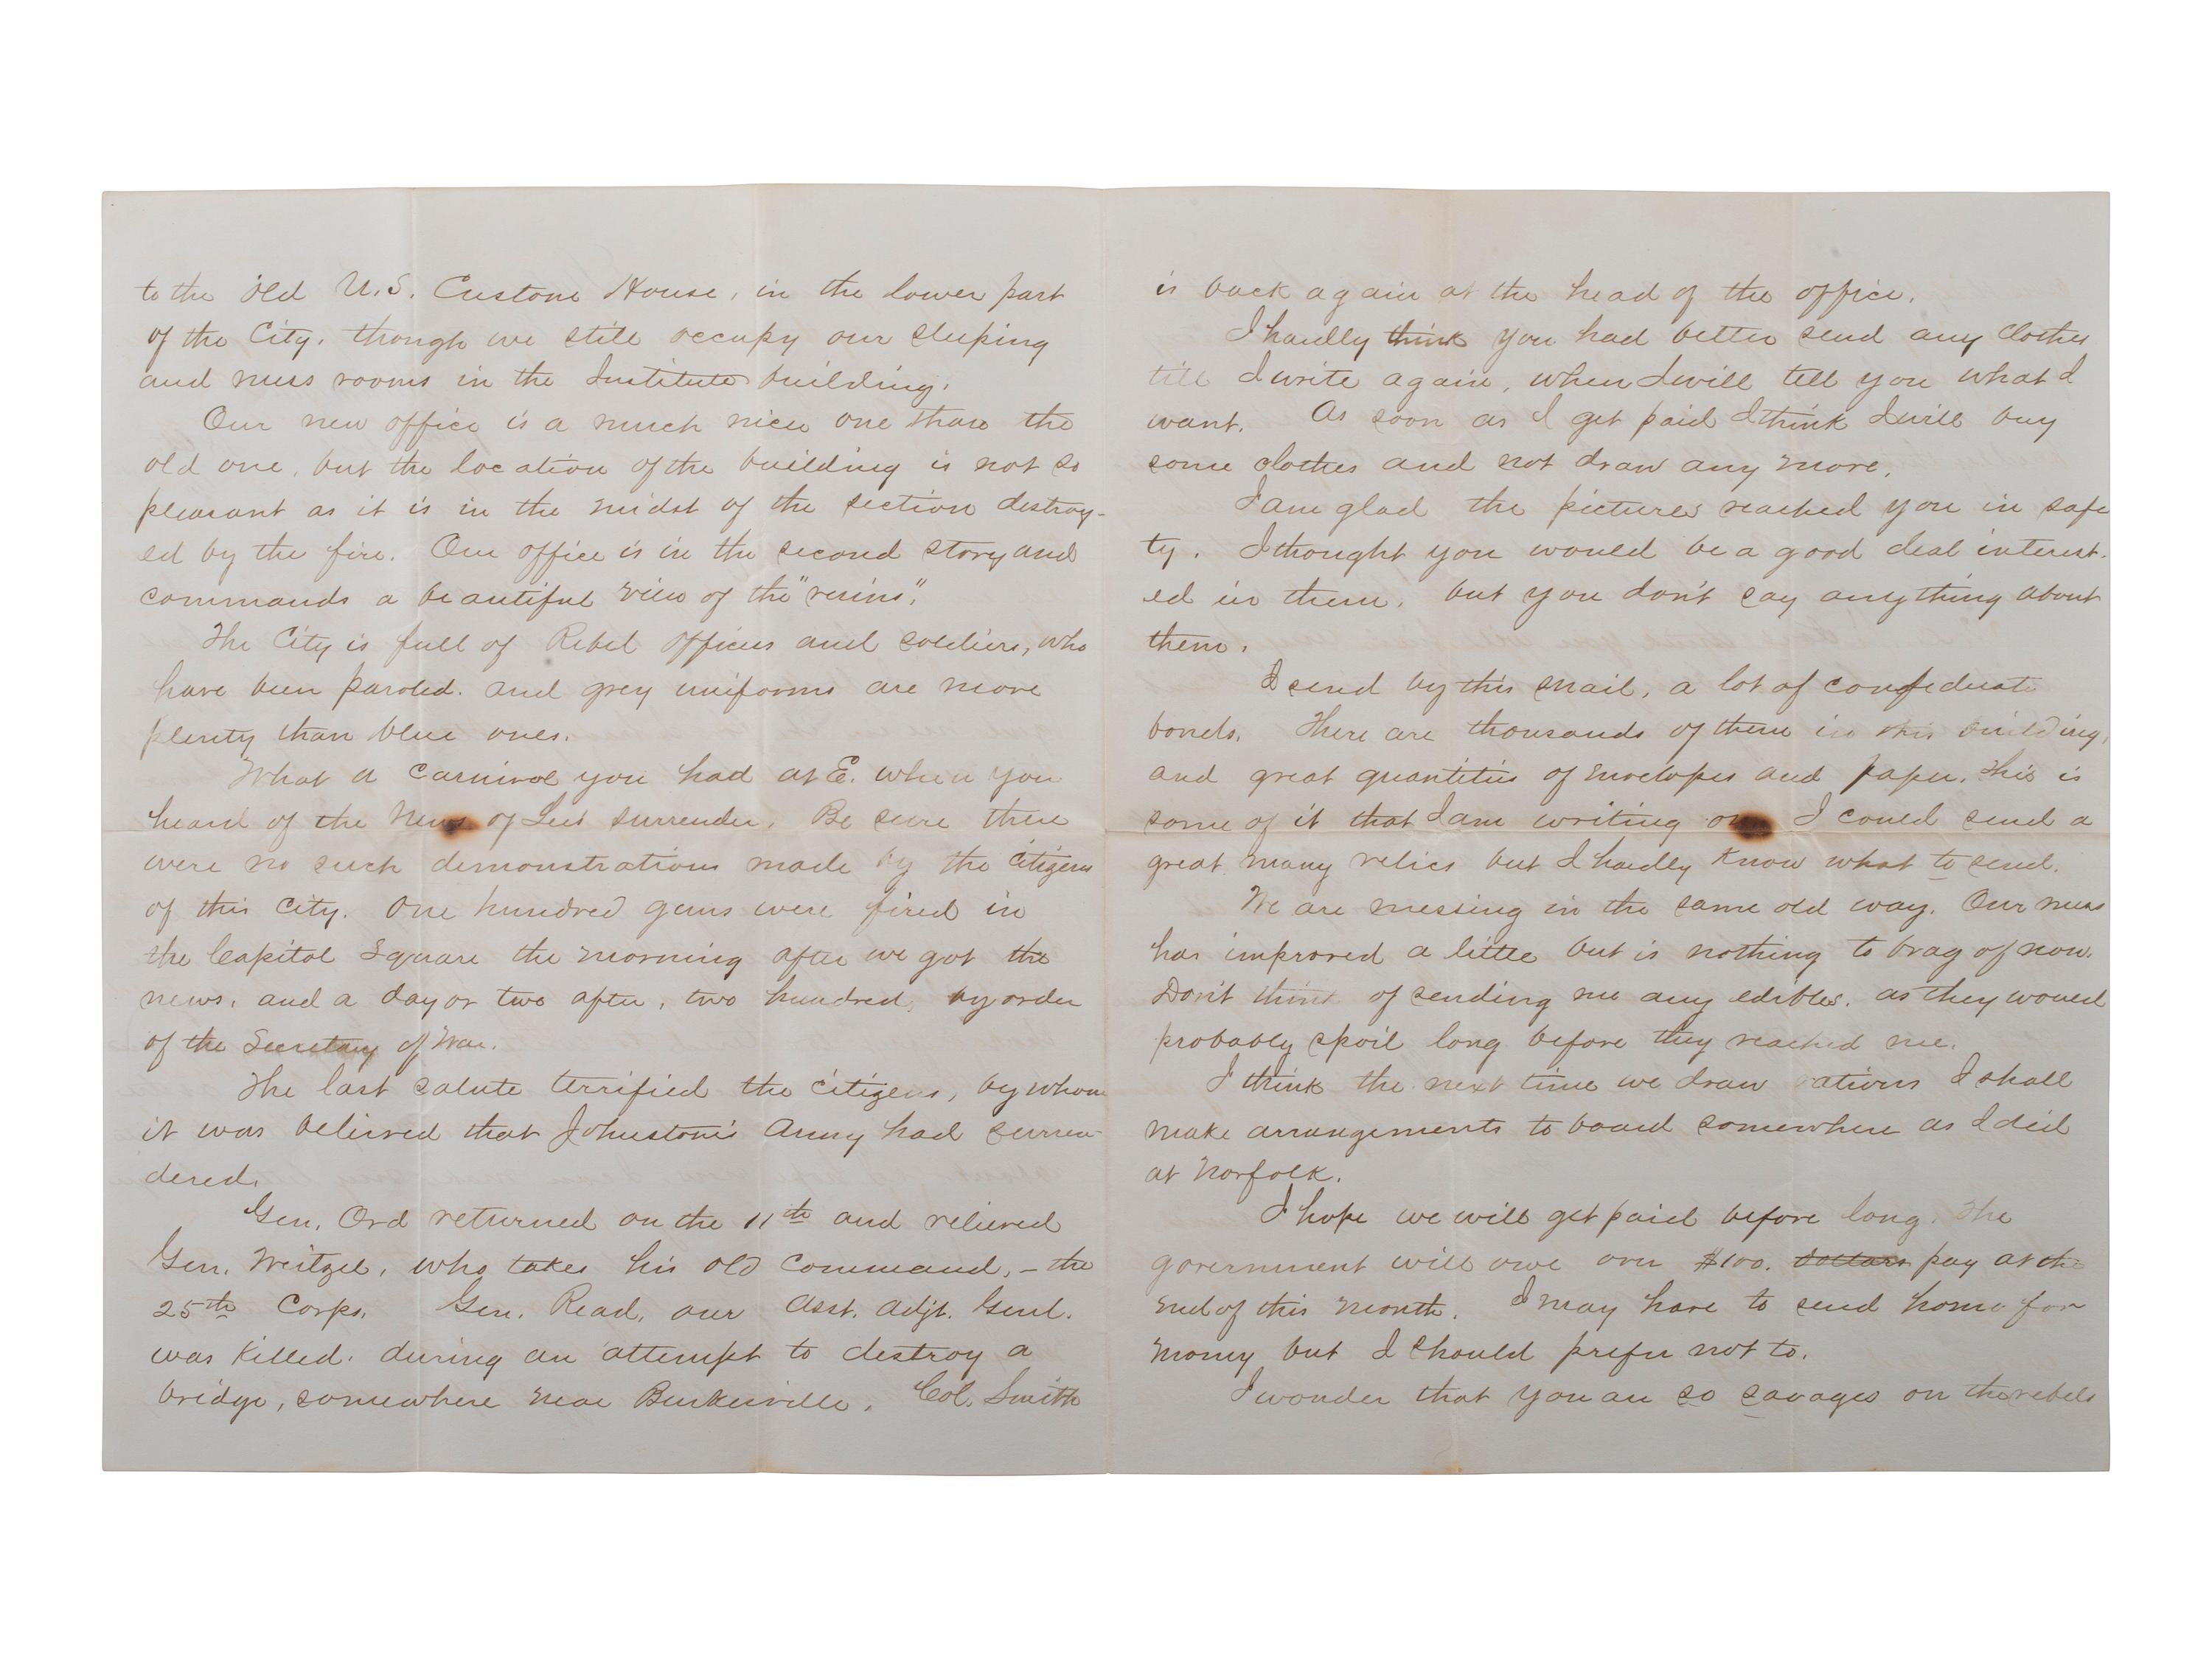 to the old U.S. Custom House, in the lower part
of the City, though we still occupy our sleeping
and mess rooms in the Institute building.
Our new office is a much nicer one than the
old one, but the location of the building is not so
pleasant as it is in the midst of the section destroy-
ed by the fire. Our office is in the second story and
commands a beautiful view of the "ruins".
The City is full of Rebel officers and soldiers, who
have been paroled. and grey uniforms are more
plenty than blue ones.
What a carnival you had at E. when you
heard of the news of Lees surrender. Be sure there
were no such demonstrations made by the citizens
of this City. One hundred guns were fired in
the Capitol Square the morning after we got the
news, and a day or two after, two hundred, by order
of the Secretary of War.
The last salute terrified the citizens, by whom
it was believed that Johnston's Army had surren-
dered.
Gen. Ord returned on the 11th and relieved
Gen. Weitzel, who takes his old command, - the
25th Corps. Gen. Read, our Asst. Adjt. Genl.
was killed. during an attempt to destroy a
bridge, somewhere near Burkesville. Col. Smith
is back again at the head of the office.
I hardly think you had better send any clothes
till I write again, when I will tell you what I
want. As soon as I get paid I think I will buy
some clothes and not draw any more.
I am glad the pictures reached you in safe
ty. I thought you would be a good deal interest-
ed in them, but you don't say anything about
them.
I send by this mail, a lot of confederate
bonds. There are thousands of them in this building,
and great quantities of envelopes and paper. This is
some of it that I am writing on. I could send a
great many relics but I hardly know what to send.
We are messing in the same old way. Our mess
has improved a little but is nothing to brag of now.
Don't think of sending me any edibles. as they would
probably spoil long before they reached me.
I think the next time we draw rations I shall
make arrangements to board somewhere as I did
at Norfolk.
I hope we will get paid before long. The
government will owe over $100. dollars pay at the
end of this month. I may have to send home for
money but I should prefer not to.
I wonder that you are so savages on the rebels